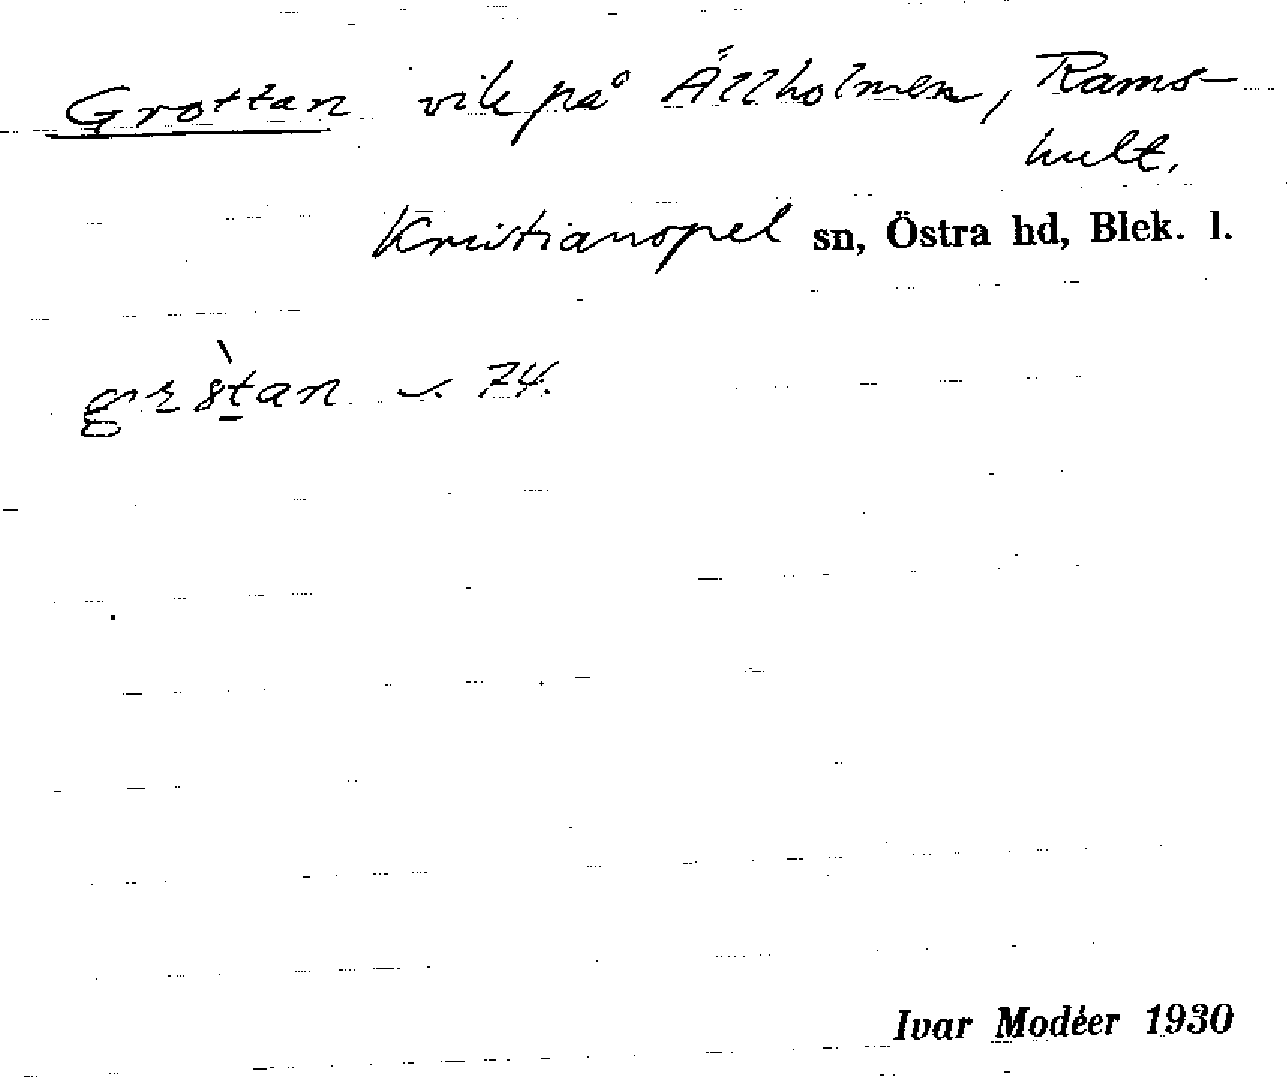 Grottan vik på Ållholmen, Rams-
hult.
Kristianopel sn, Östra hd, Blek. l.
74.
Ivar Modéer 1930